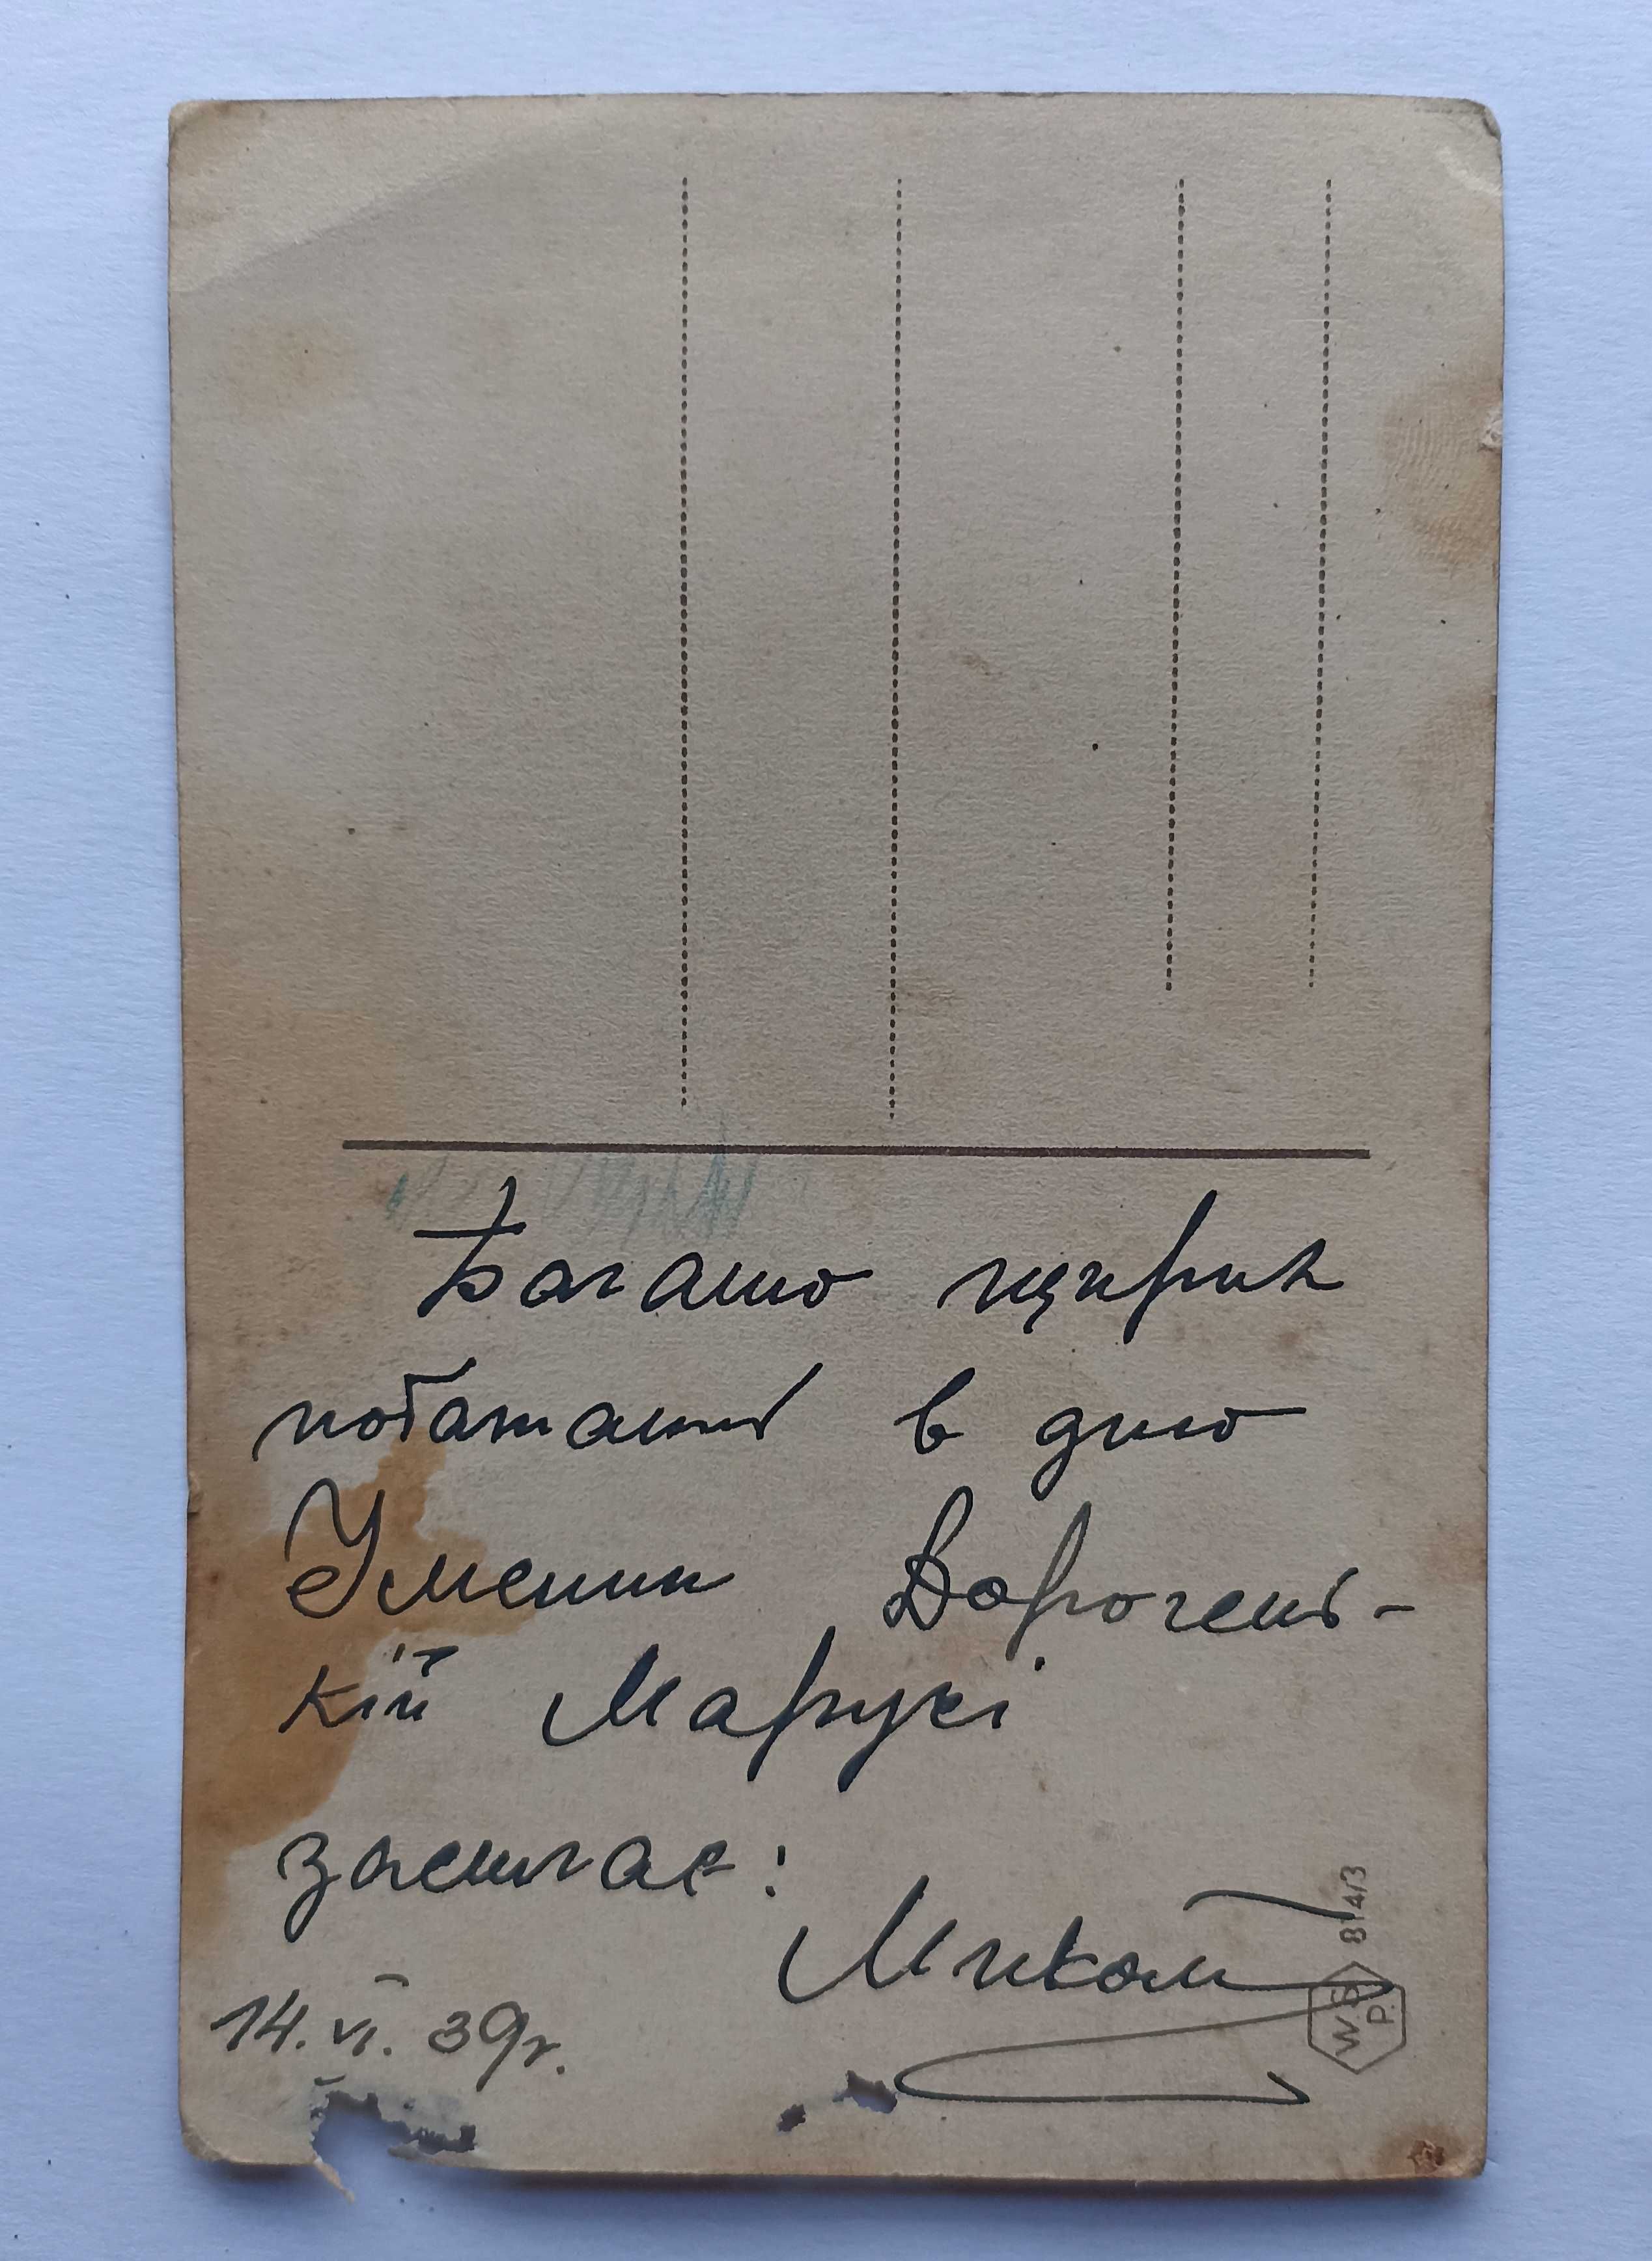 Багато щирих
побажань в дню
Уменин Дорогень-
кій Марусі
засилає:
Микола
14. VI. 39 г.
W.S.P. 8143